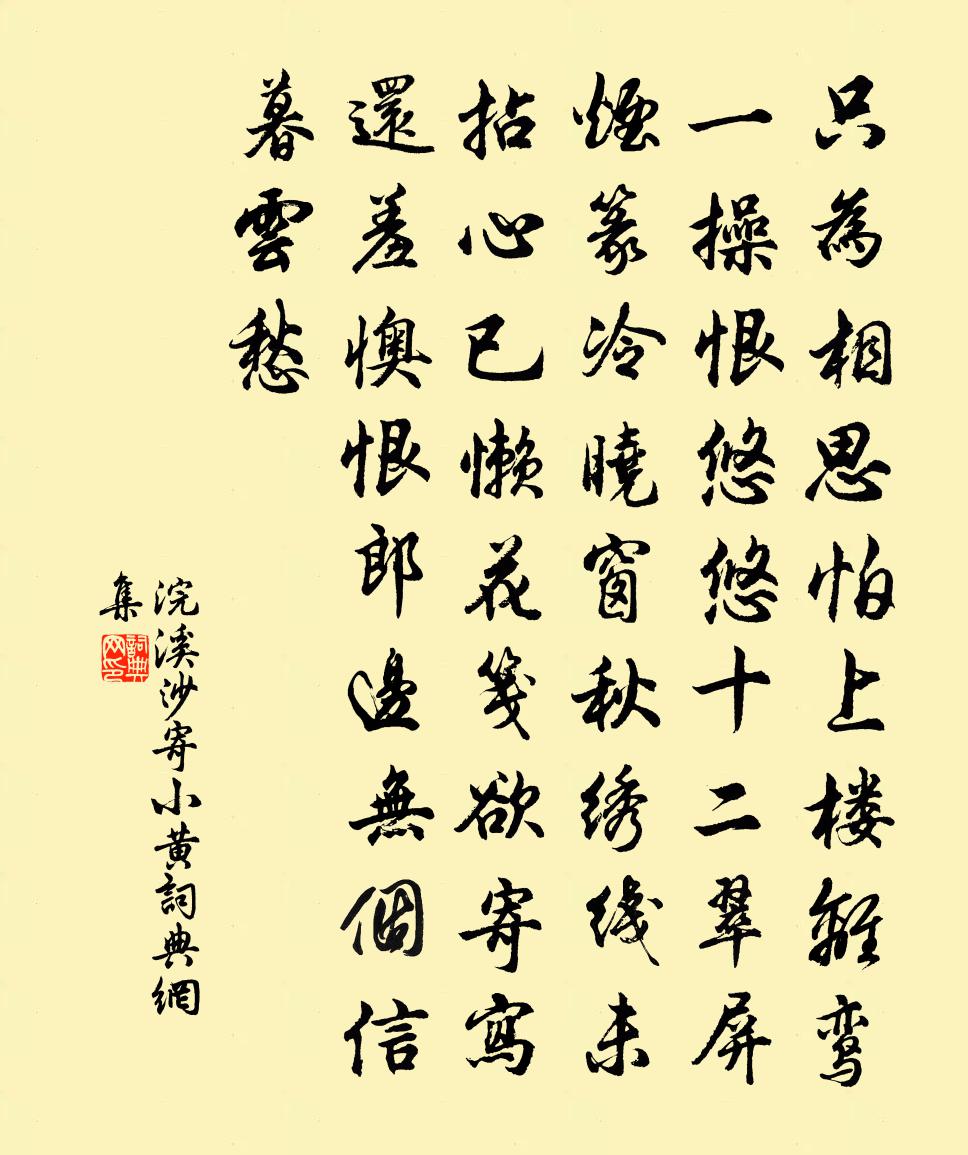 只為相思怕上楼離鸾
一操恨悠悠十二翠屏
煙篆冷曉窗秋绣线未
拈心已懒花箋欲寄寫
還羞懊恨郎邊無個信
暮雲愁
浣溪沙寄小黄詞典網
集
詞典网印